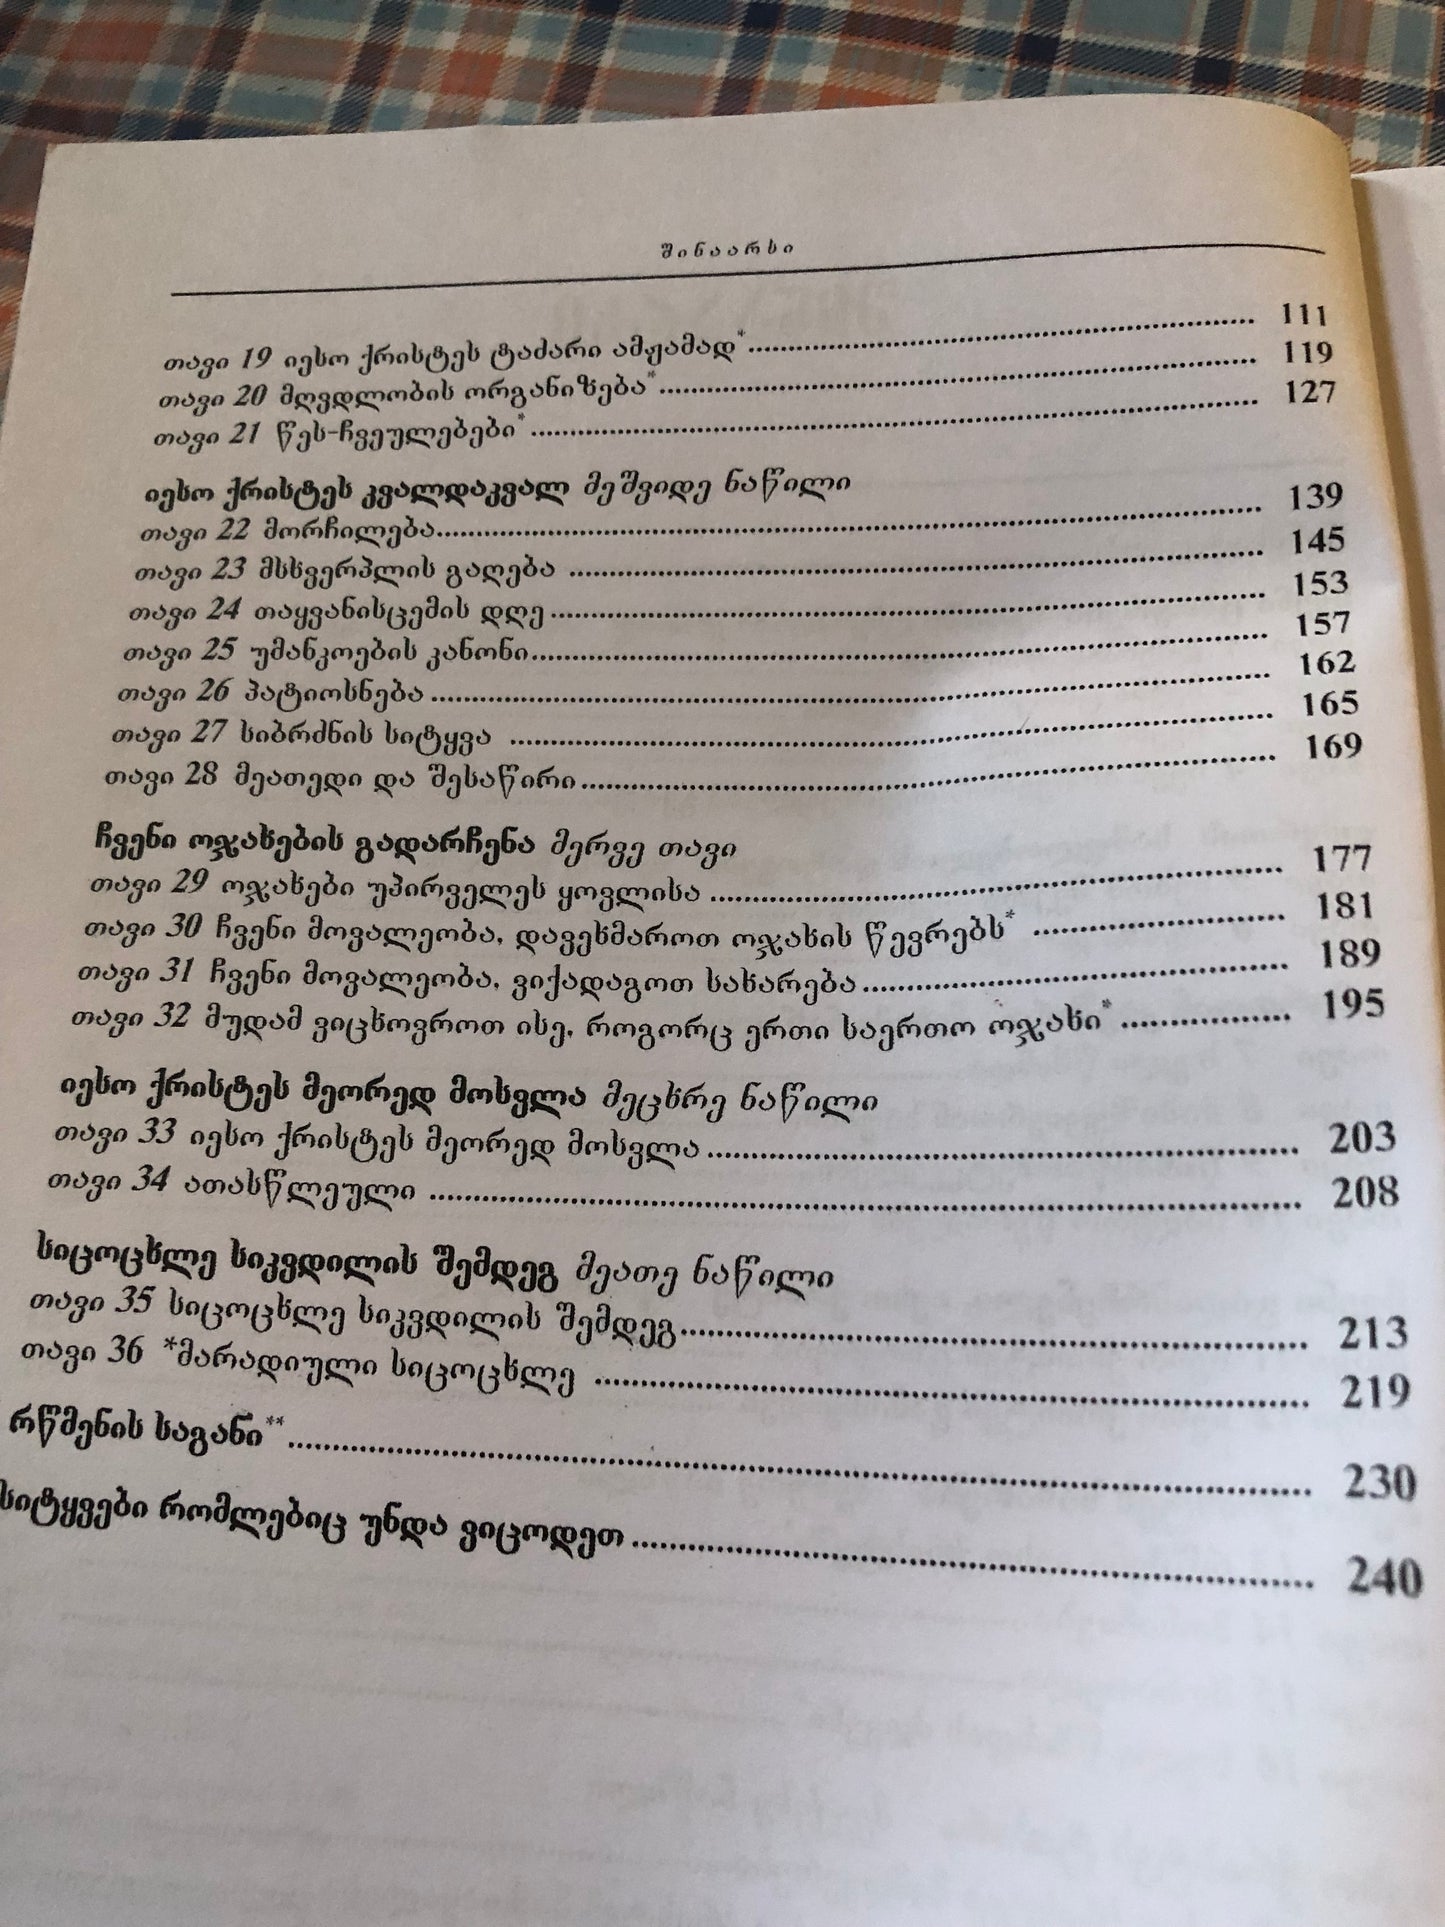 შინაარსი
თავი 19 იესო ქრისტეს ტაძარი ამჟამად*........ 111
თავი 20 მღვდლობის ორგანიზება*........ 119
თავი 21 წეს-ჩვეულებები*........ 127
იესო ქრისტეს კვალდაკვალ მეშვიდე ნაწილი
თავი 22 მორჩილება........ 139
თავი 23 მსხვერპლის გაღება ........ 145
თავი 24 თაყვანისცემის დღე........ 153
თავი 25 უმანკოების კანონი........ 157
თავი 26 პატიოსნება........ 162
თავი 27 სიბრძნის სიტყვა ........ 165
თავი 28 მეათედი და შესაწირი........ 169
ჩვენი ოჯახების გადარჩენა მერვე თავი
თავი 29 ოჯახები უპირველეს ყოვლისა ........ 177
თავი 30 ჩვენი მოვალეობა, დავეხმაროთ ოჯახის წევრებს* ........ 181
თავი 31 ჩვენი მოვალეობა, ვიქადაგოთ სახარება........ 189
თავი 32 მუდამ ვიცხოვროთ ისე, როგორც ერთი საერთო ოჯახი* ........ 195
იესო ქრისტეს მეორედ მოსვლა მეცხრე ნაწილი
თავი 33 იესო ქრისტეს მეორედ მოსვლა........ 203
თავი 34 ათასწლეული ........ 208
სიცოცხლე სიკვდილის შემდეგ მეათე ნაწილი
თავი 35 სიცოცხლე სიკვდილის შემდეგ........ 213
თავი 36 *მარადიული სიცოცხლე ........ 219
რწმენის საგანი**........ 230
სიტყვები რომლებიც უნდა ვიცოდეთ........ 240